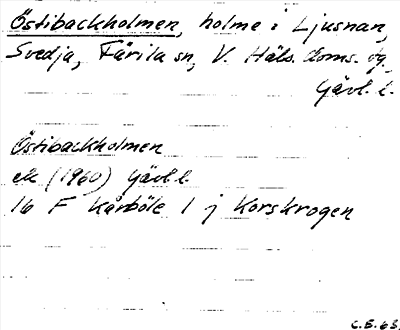 Östibackholmen, holme i Ljusnan,
Svedja, Färila sn, V. Häls. doms. dg.
Gävl. l.
Östibackholmen
ek (1960) Gävl l
16 F Kårböle 1 j Korskrogen
C.E. 63.